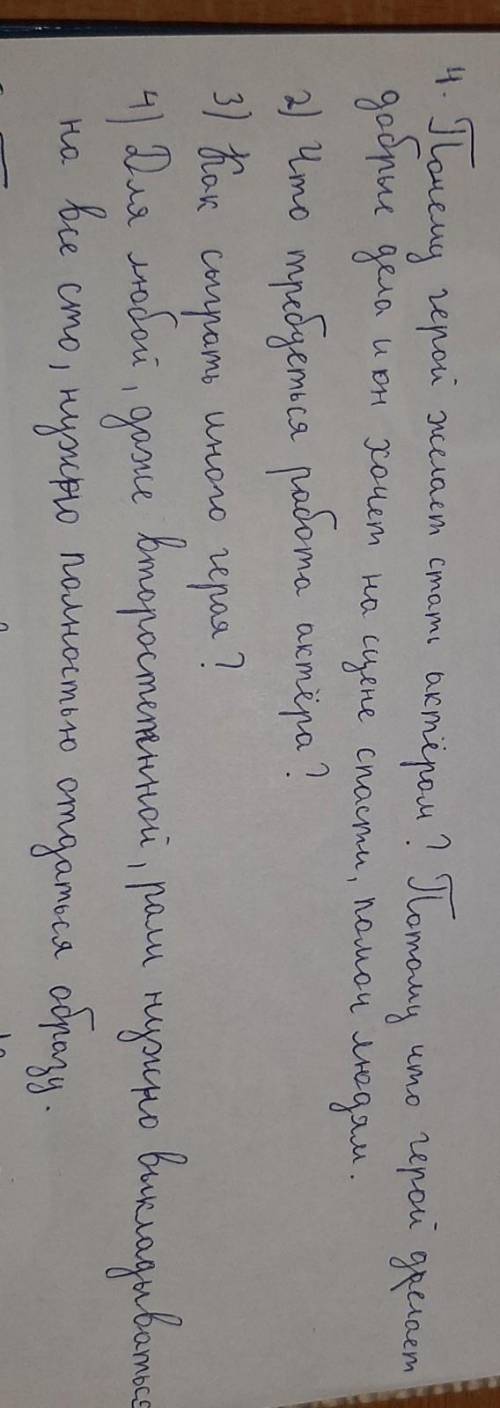 4. Почему герой желает стать актёром? Потому что герой делает
добрые дела и он хочет на сцене спасти, помоч людям.
2) Что требуеться работа актёра?
3) Как сыграть иного героя?
4) Для любой, даже второстепенной, роли нужно выкладываться
на все сто, нужно полностью отдаться образу.